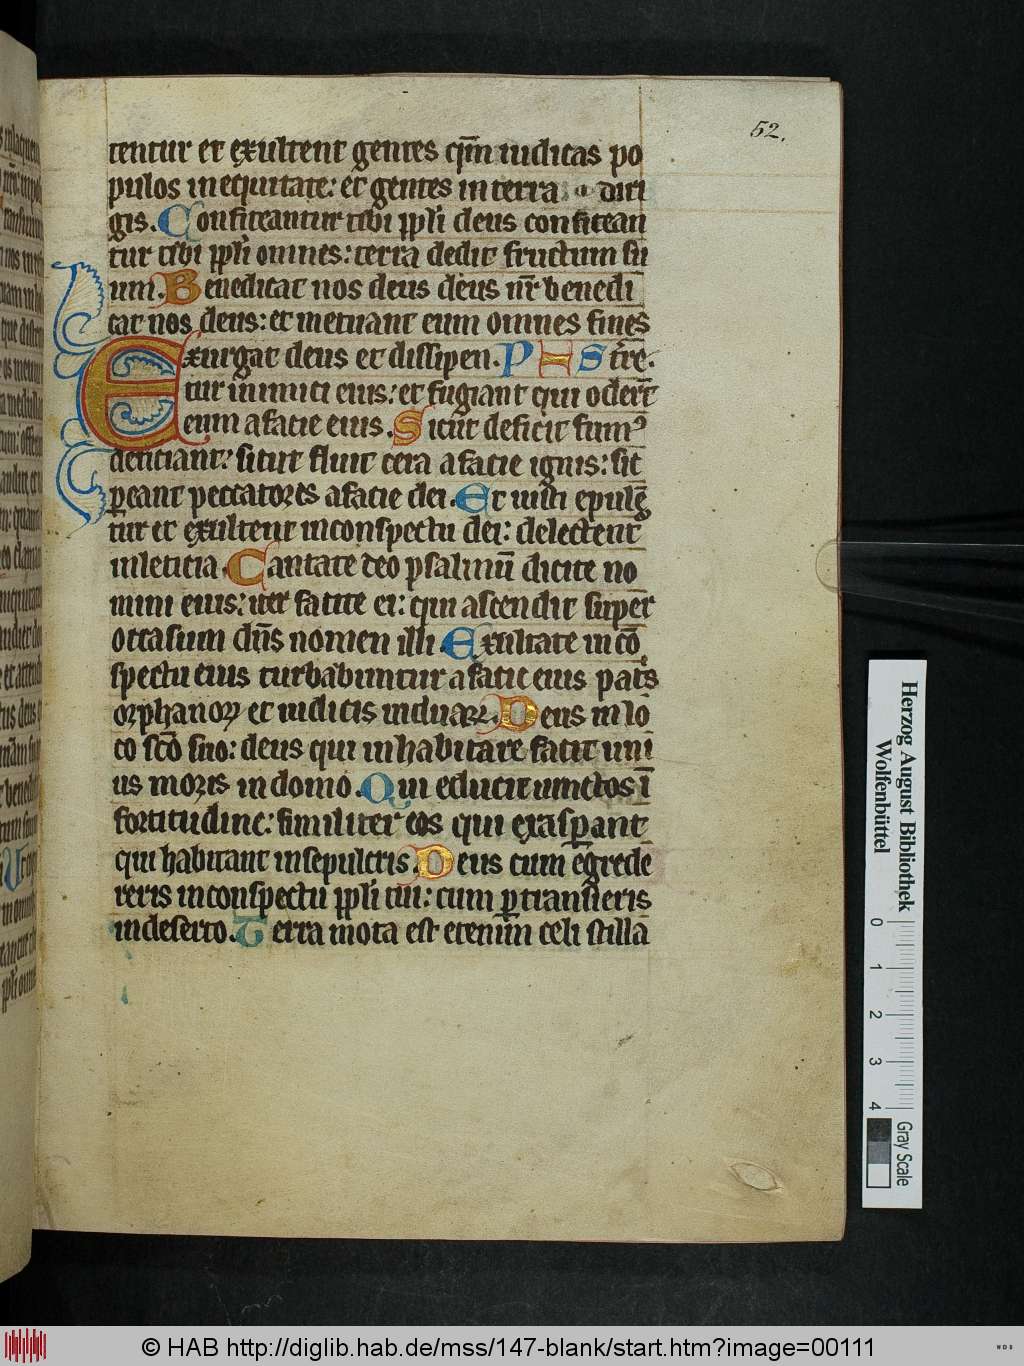 52.
tentur et exultent gentes qm̄ iudicas po
pulos in equitate: et gentes in terra diri
gis. Confiteantur tibi ppl'i deus confitean
tur tibi ppl'i omnes: terra dedit fructum su
um. Benedicat nos deus deus nr̄ benedi
cat nos deus: et metuant eum omnes fines
Exurgat deus et dissipen. P S t're.
tur inimici eius: et fugiant qui odert̄
eum a facie eius. Sicut deficit fumꝰ
deficiant: sicut fluit cera a facie ignis: sic̄
ꝑeant peccatores a facie dei. Et iusti epulē
tur et exultent in conspectu dei: delectent
in leticia. Cantate deo psalmū dicite no
mini eius: iter facite ei: qui ascendit super
occasum dn̄s nomen illi. Exultate in cō
spectu eius turbabuntur a facie eius pat's
orphanoꝝ et iudicis uiduaꝝ. Deus in lo
co sc̄o suo: deus qui inhabitare facit uni
us moris in domo. Qui educit uinctos ī
fortitudine: similiter eos qui exasꝑant
qui habitant in sepulcris. Deus cum egrede
reris in conspectu ppl'i tui: cum ꝑtransieris
in deserto. Terra mota est etenim celi stillā
Herzog August Bibliothek
Wolfenbüttel
0 1 2 3 4
Gray Scale
© HAB http://diglib.hab.de/mss/147-blank/start.htm?image=00111